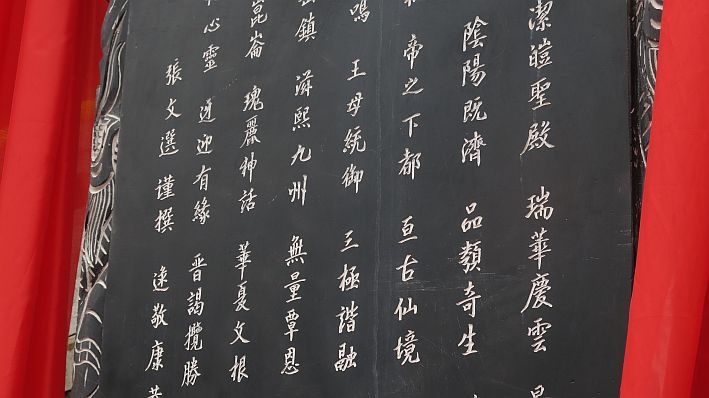 潔皚聖殿 瑞華慶雲
陰陽既濟 品類奇生
帝之下都 亘古仙境
鳴 王母統御 三極諧融
鎮 熙九州 無量覃恩
崑崙 瑰麗神話 華夏文根
心靈 迓迎有緣 晋謁攬勝
張文選 謹撰 逯敬康